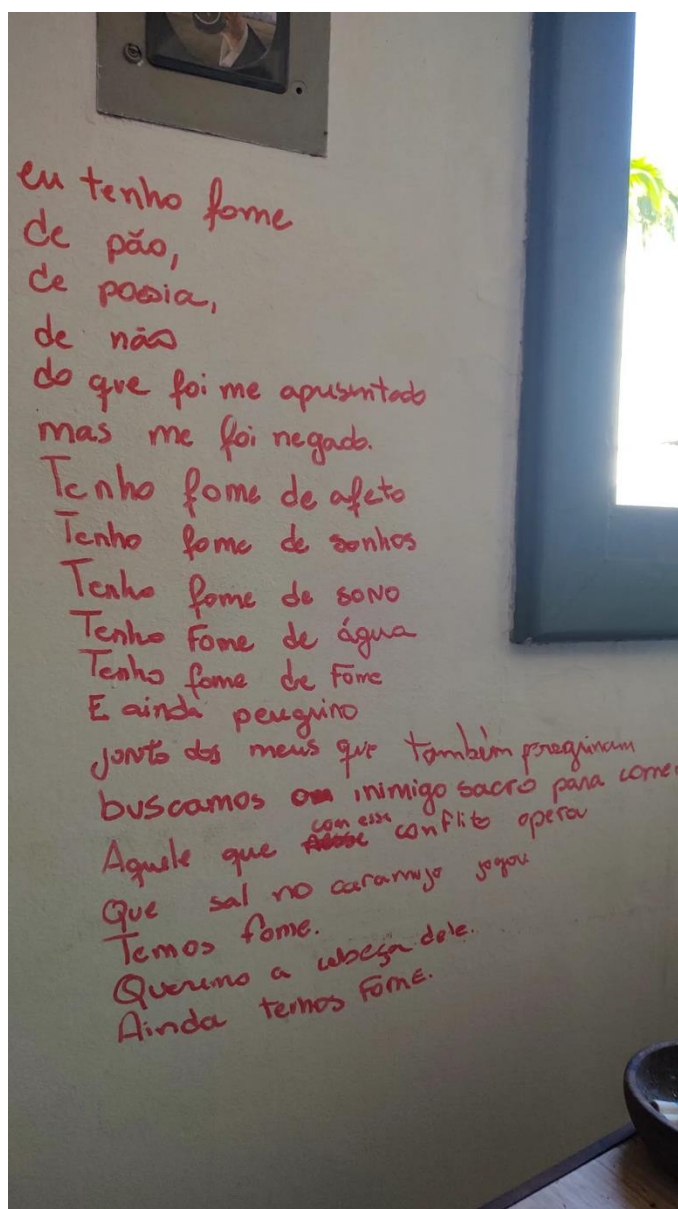 eu tenho fome
de pão,
de poesia,
de não
do que foi me apresentado
mas me foi negado.
Tenho fome de afeto
Tenho fome de sonhos
Tenho fome de sono
Tenho Fome de água
Tenho fome de Fome
E ainda peregrino
junto dos meus que também peregrinam
buscamos o inimigo sacro para comer
Aquele que com esse conflito operou
Que sal no caramujo jogou
Temos fome.
Queremo a cabeça dele.
Ainda temos Fome.